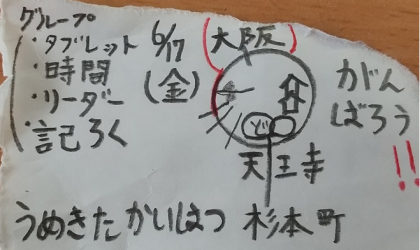 グループ
・タブレット
・時間
・リーダー
・記ろく
6/17
(金)
(大阪)
天王寺
がん
ばろう
!!
うめきたかいはつ 杉本町